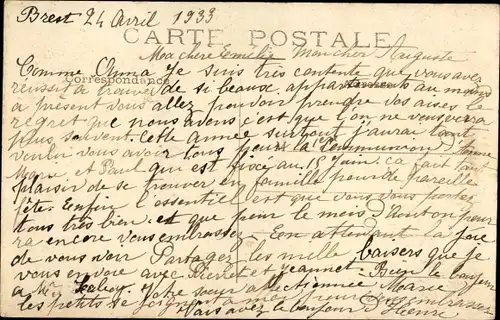 Brest 24 Avril 1933
CARTE POSTALE
Ma chère Emélie Mon cher Auguste
Comme Anna Je suis très contente que vous avez
Correspondance
réussit a trouver de si beaux appartements au moins
a présent vous allez pouvoir prendre vos aises le
regret que nous avons c'est que l'on ne vous verra
plus souvent. Cette année surtout j'aurai tant
voulu vous avoir tous pour la Communion
Marie et Paul qui est fixée au 15 Juin. ça fait tant
plaisir de se trouver en famille pour de pareille
fête. Enfin l'essentiel est que vous vous portez
tous très bien et que pour le mois d'Aout on pour
ra encore vous embrasser. En attendant la joie
de vous voir Partagez les mille baisers que je
vous envoie avec Pierlet et Jeannet. Bien le bonjour
a Mr Votre soeur affectionnée Marie
les petits se joignent a moi pour vous embrasser
Vous avez le bonjour d'Etienne